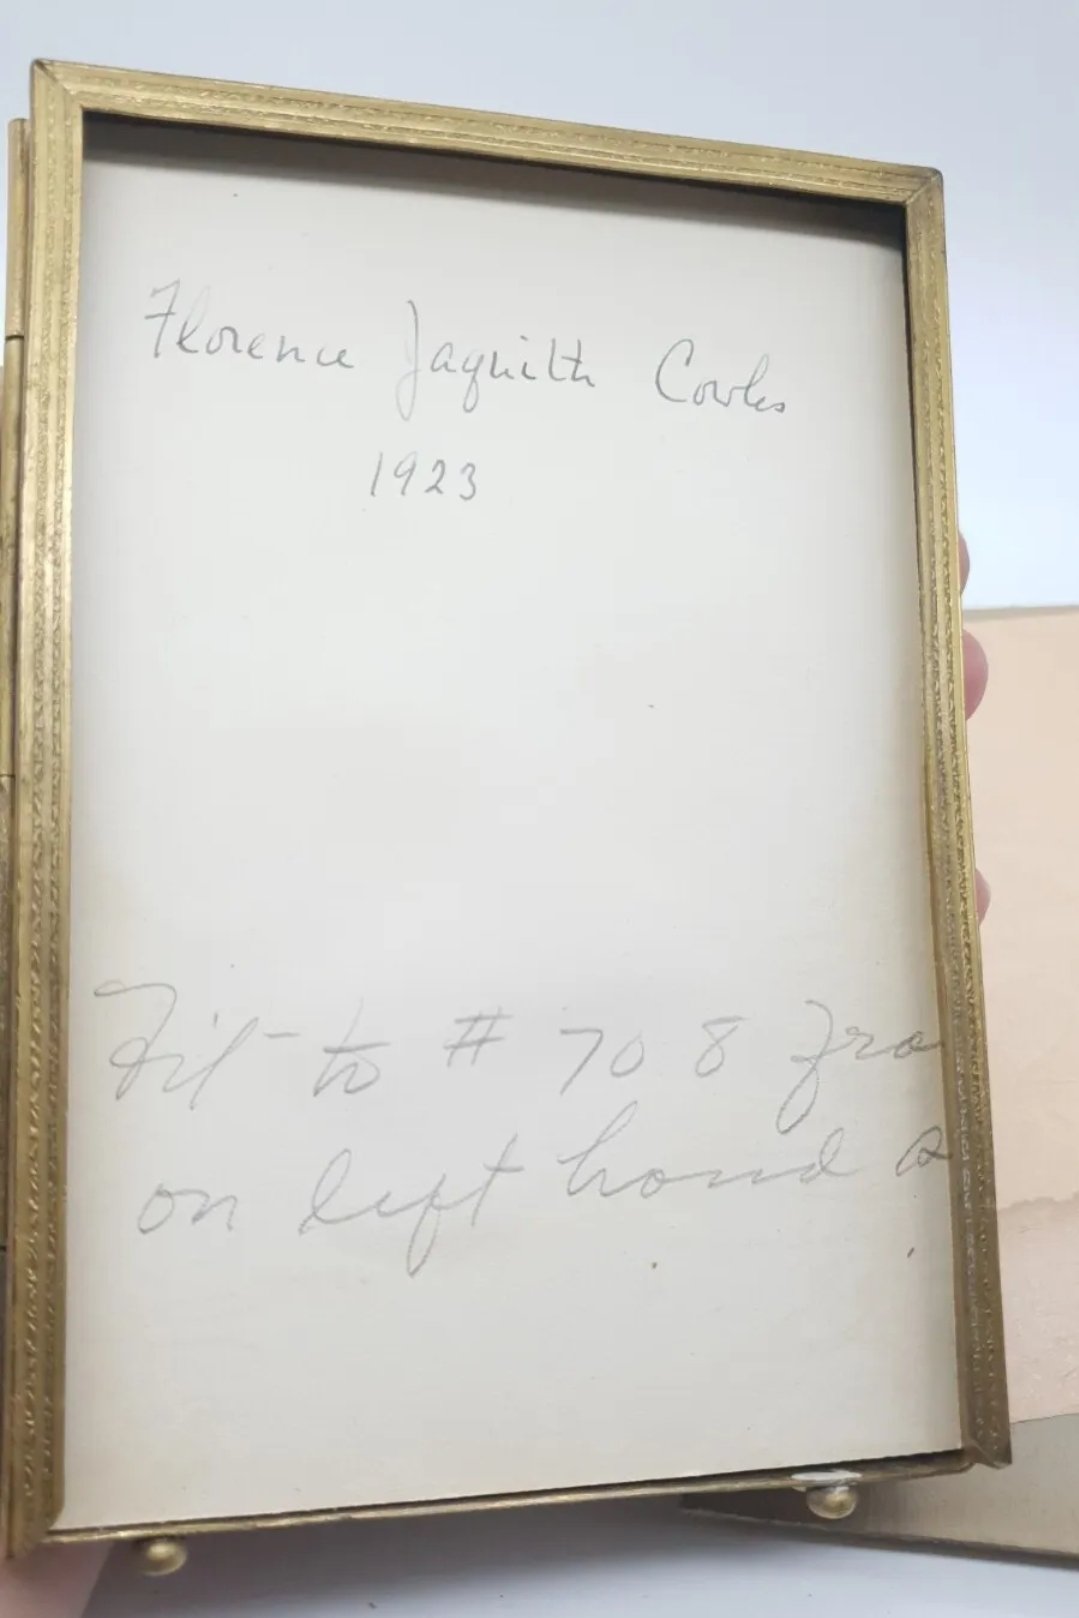 Florence Jaquith Cowles
1923
Fit to # 708 fra
on left hand s